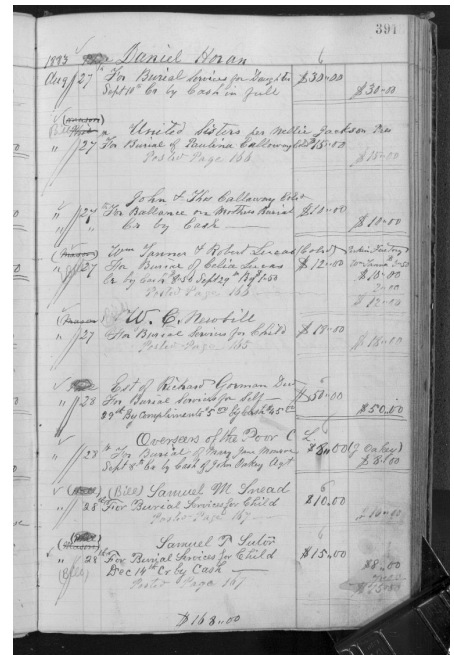 391
1893 Daniel Horan 6
Aug 27th For Burial Services for Daughter $30-00
Sept 10th Cr by Cash in full $30-00
(Mason)
(Bill) United Sisters per Nellie Jackson Pres
27 For Burial of Paulina Calloway $15-00
Posted Page 166 $15-00
John & Thos Calloway Cold
" 27th For Ballance on Mothers Burial $10-00
" " Cr by Cash $10-00
(Mason) Wm Tanner & Robert Lucas (Cold)
" 27 For Burial of Celia Lucas $12-00
Cr by Cash 8.50 Sept 29th 1.50 $10-00
Posted Page 166 2-00
$12-00
(Mason) W. C. Newbill
" 27 For Burial Services for Child $18-00
Posted Page 165 $18-00
Est of Richard Gorman Dec 6
" 28 For Burial Services for Self $50-00
29th By Compliments $5.00 by Cash $45.00 $50.00
Overseers of the Poor C. L.
" 28th For Burial of Mary Jane Moore $3-00 (J Oakey)
Sept 8th Cr by Cash of John Oakey Agt $3-00
(Bill) Samuel M. Snead 6
" 28th For Burial Services for Child $10-00
Posted Page 167 $10-00
(Mason) Samuel T. Sutor 6
" 28th For Burial Services for Child $15-00
(Bill) Dec 14th Cr by Cash $8-00
Posted Page 167 $15-00
$168-00